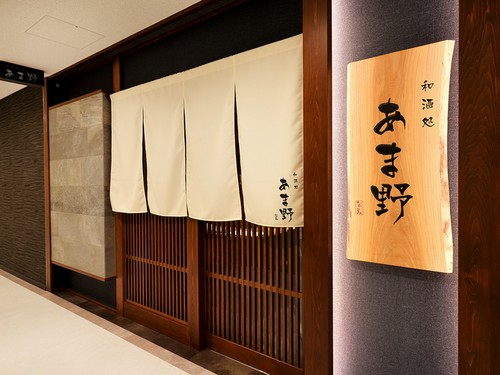 あま野
和酒処
あま野
和酒処
あま野